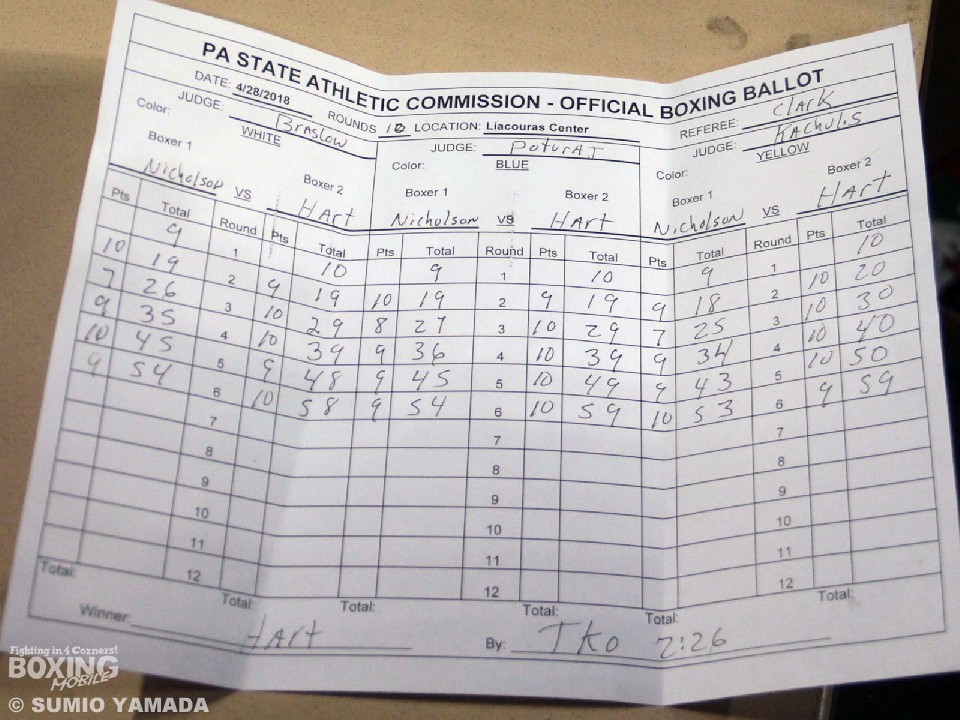 PA STATE ATHLETIC COMMISSION - OFFICIAL BOXING BALLOT
DATE: 4/28/2018 ROUNDS 10 LOCATION: Liacouras Center REFEREE: Clark
JUDGE: Braslow JUDGE: Poturaj JUDGE: Kachulis
Color: WHITE Color: BLUE Color: YELLOW
Boxer 1 Boxer 2 Boxer 1 Boxer 2 Boxer 1 Boxer 2
Nicholson VS HArt Nicholson VS HArt Nicholson VS HArt
Pts Total Round Pts Total Pts Total Round Pts Total Pts Total Round Pts Total
9 1 10 9 1 10 9 1 10
10 19 2 9 19 10 19 2 9 19 9 18 2 10 20
7 26 3 10 29 8 27 3 10 29 7 25 3 10 30
9 35 4 10 39 9 36 4 10 39 9 34 4 10 40
10 45 5 9 48 9 45 5 10 49 9 43 5 10 50
9 54 6 10 58 9 54 6 10 59 10 53 6 9 59
7 7 7
8 8 8
9 9 9
10 10 10
11 11 11
12 12 12
Total: Total: Total: Total: Total: Total:
Winner: HArt By: TKO 2:26
Fighting in 4 Corners!
BOXING
MOBILE
© SUMIO YAMADA